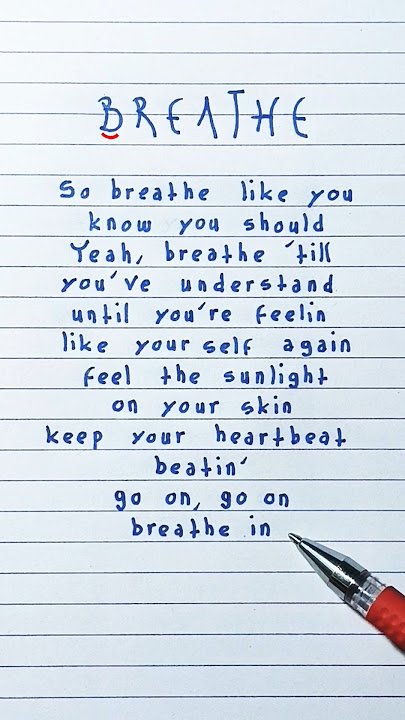 BREATHE
So breathe like you
know you should
Yeah, breathe 'till
you've understand
until you're feelin
like your self again
feel the sunlight
on your skin
keep your heartbeat
beatin'
go on, go on
breathe in